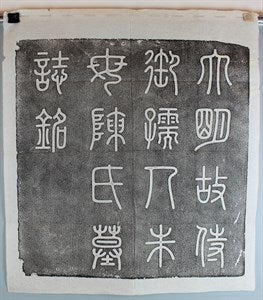 大明故侍
御孺人朱
母陳氏墓
誌銘